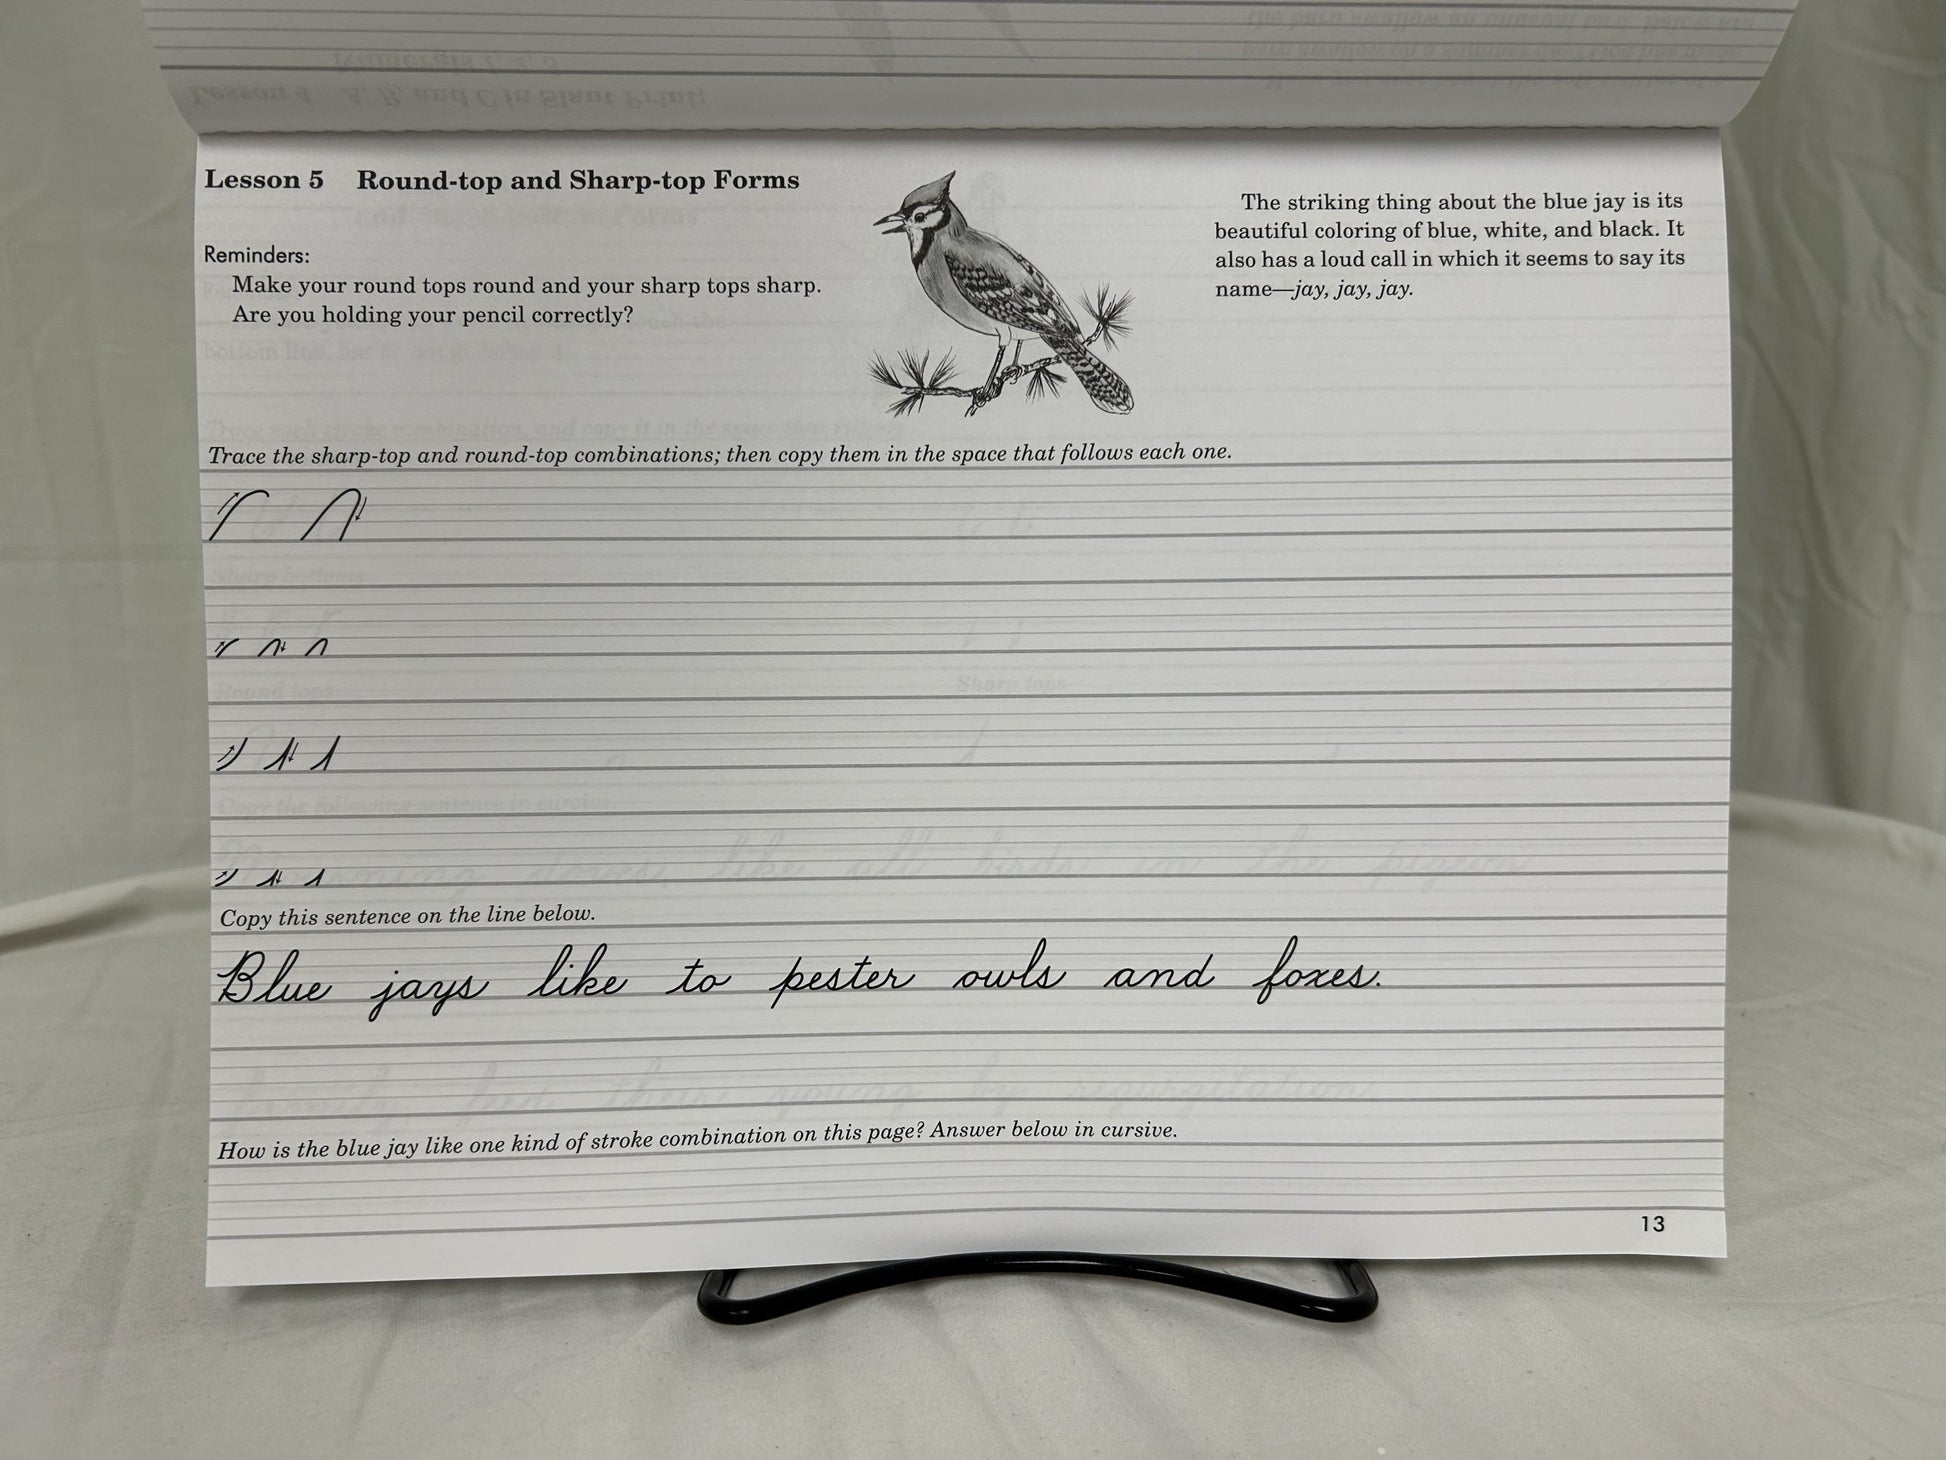 Lesson 5 Round-top and Sharp-top Forms
Reminders:
Make your round tops round and your sharp tops sharp.
Are you holding your pencil correctly?
The striking thing about the blue jay is its
beautiful coloring of blue, white, and black. It
also has a loud call in which it seems to say its
name—jay, jay, jay.
Trace the sharp-top and round-top combinations; then copy them in the space that follows each one.
Copy this sentence on the line below.
Blue jays like to pester owls and foxes.
How is the blue jay like one kind of stroke combination on this page? Answer below in cursive.
13